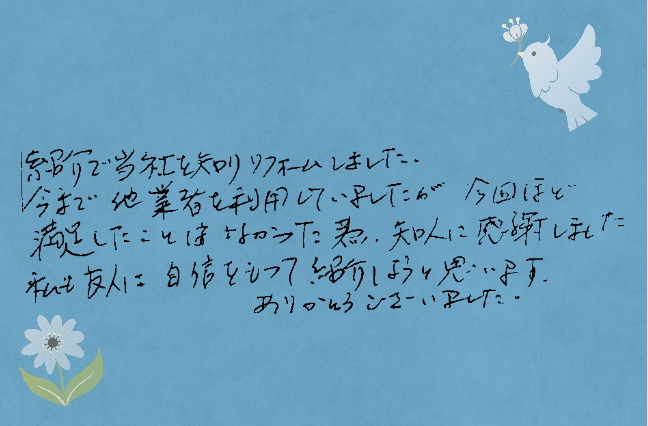 紹介で当社を知りリフォームしました.
今まで他業者を利用していましたが 今回ほど
満足したことはなかった為、知人に感謝しました
私も友人に自信をもって紹介しようと思います.
ありがとうございました.